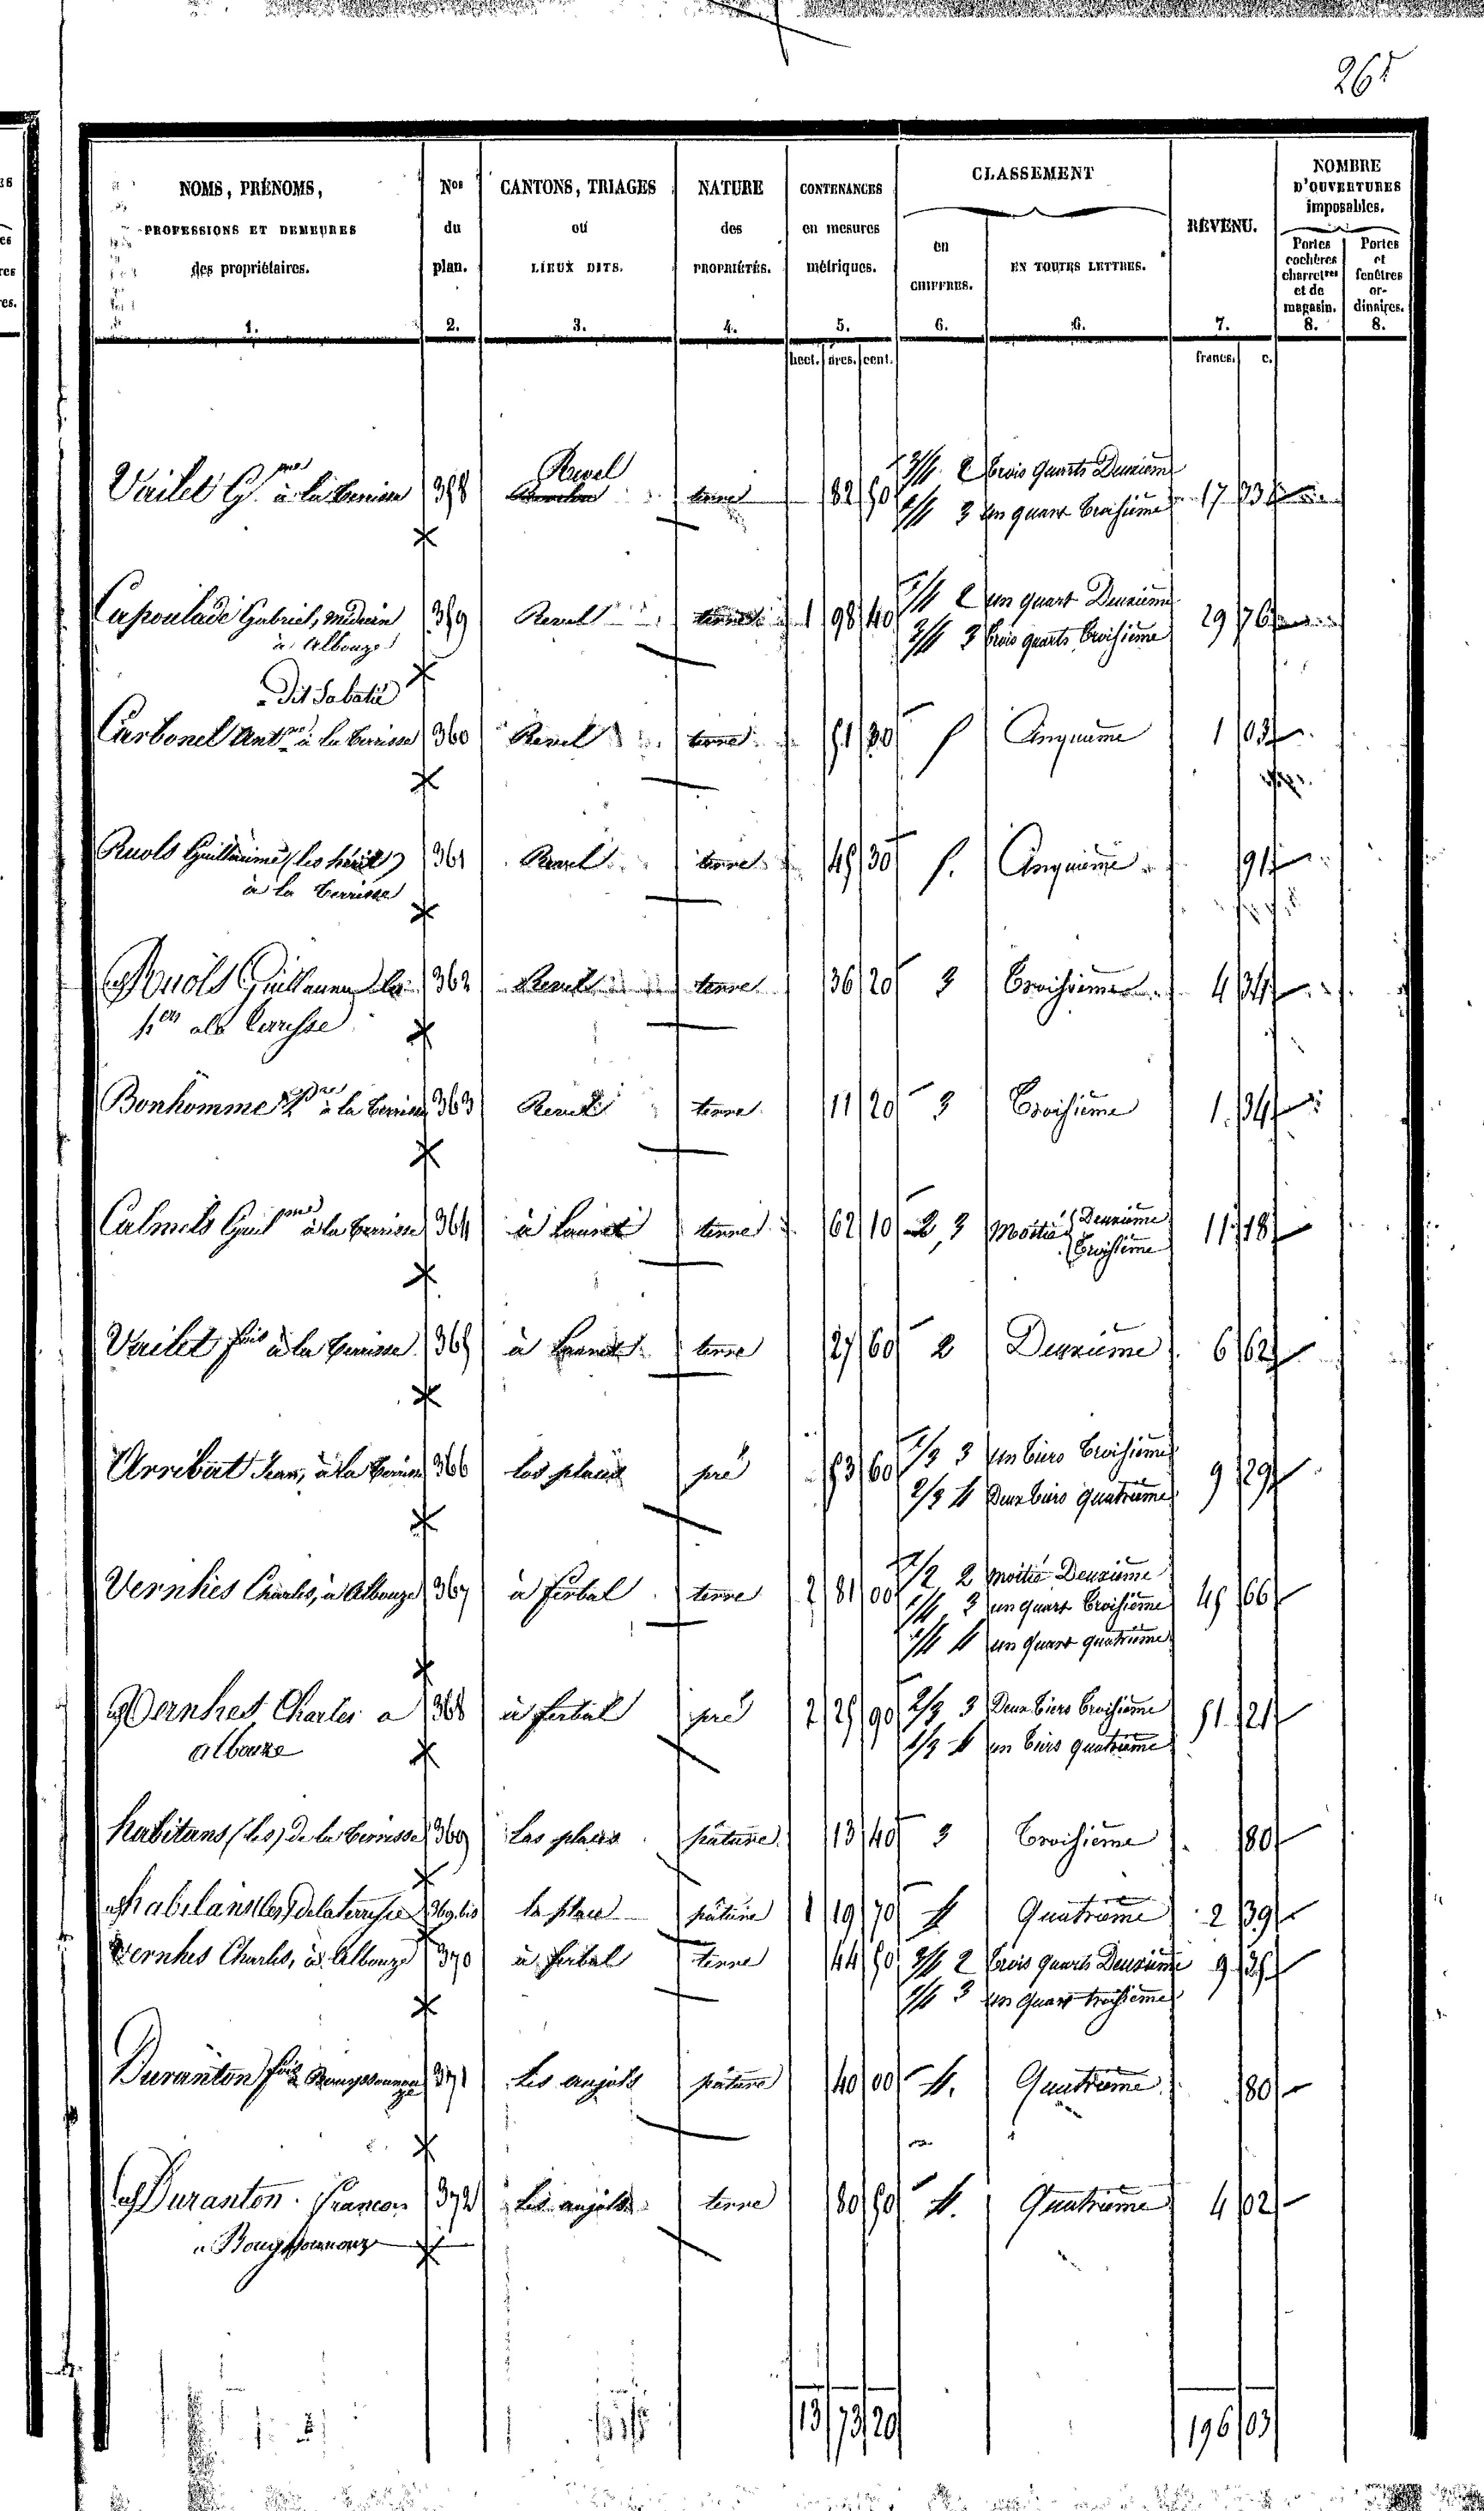 265
NOMS, PRÉNOMS,
PROFESSIONS ET DEMEURES
des propriétaires.
1.
Nos
du
plan.
2.
CANTONS, TRIAGES
ou
LIEUX DITS.
3.
NATURE
des
PROPRIÉTÉS.
4.
CONTENANCES
en mesures
métriques.
5.
CLASSEMENT
en
CHIFFRES.
6.
EN TOUTES LETTRES.
6.
REVENU.
7.
NOMBRE
D'OUVERTURES
imposables.
Portes
cochères
charretres
et de
magasin.
8.
Portes
et
fenêtres
or-
dinaires.
8.
hect. ares. cent.
francs. c.
Revel
à la terrisse 358 terre 82 50 3/4 2 trois quarts Deuxieme 17 73
1/4 3 un quart troisieme
Capoulade Gabriel, médecin 359 Revel terre 1 98 40 1/4 2 un quart Deuxieme 29 76
à Albouze 3/4 3 trois quarts troisieme
Dit Sabatié
Carbonel Antne à la terrisse 360 Revel terre 51 30 5 Cinquieme 1 03
Ruols Guillaume (les hérit) 361 Revel terre 45 30 5. Cinquieme 91
à la terrisse
Ruols Guillaume les 362 Revel terre 36 20 3 troisieme 4 34
hers a la terrisse
Bonhomme à la terrisse 363 Revel terre 11 20 3 troisieme 1. 34
Calmels Guilme à la terrisse 364 terre 62 10 2, 3 Moitié Deuxieme 11 18
troisieme
Vailet fois à la terrisse 365 terre 27 60 2 Deuxieme 6 62
Arribat Jean, à la terrisse 366 Las places pré 53 60 1/3 3 un tiers troisieme 9 29
2/3 4 Deux tiers quatrieme
Vernhes Charles, à Albouze 367 à ferbal terre 2 81 00 1/2 2 moitié Deuxieme 45 66
1/4 3 un quart troisieme
1/4 4 un quart quatrieme
Vernhes Charles a 368 à ferbal pré 2 25 90 2/3 3 Deux tiers troisieme 51. 21
albouze 1/3 4 un tiers quatrieme
habitans (les) de la terrisse 369 Las places pâture 13 40 3 troisieme 80
habitans (les) de la terrisse 369 bis la place pâture 1 19 70 4 Quatrieme 2 39
Vernhes Charles, à Albouze 370 à ferbal terre 44 50 3/4 2 trois quarts Deuxieme 9 35
1/4 3 un quart troisieme
Duranton fois 371 Les anjols pâture 40 00 4. Quatrieme 80
Duranton. françois 372 Les anjols terre 80 50 4. Quatrieme 4 02
13 73 20 196 03